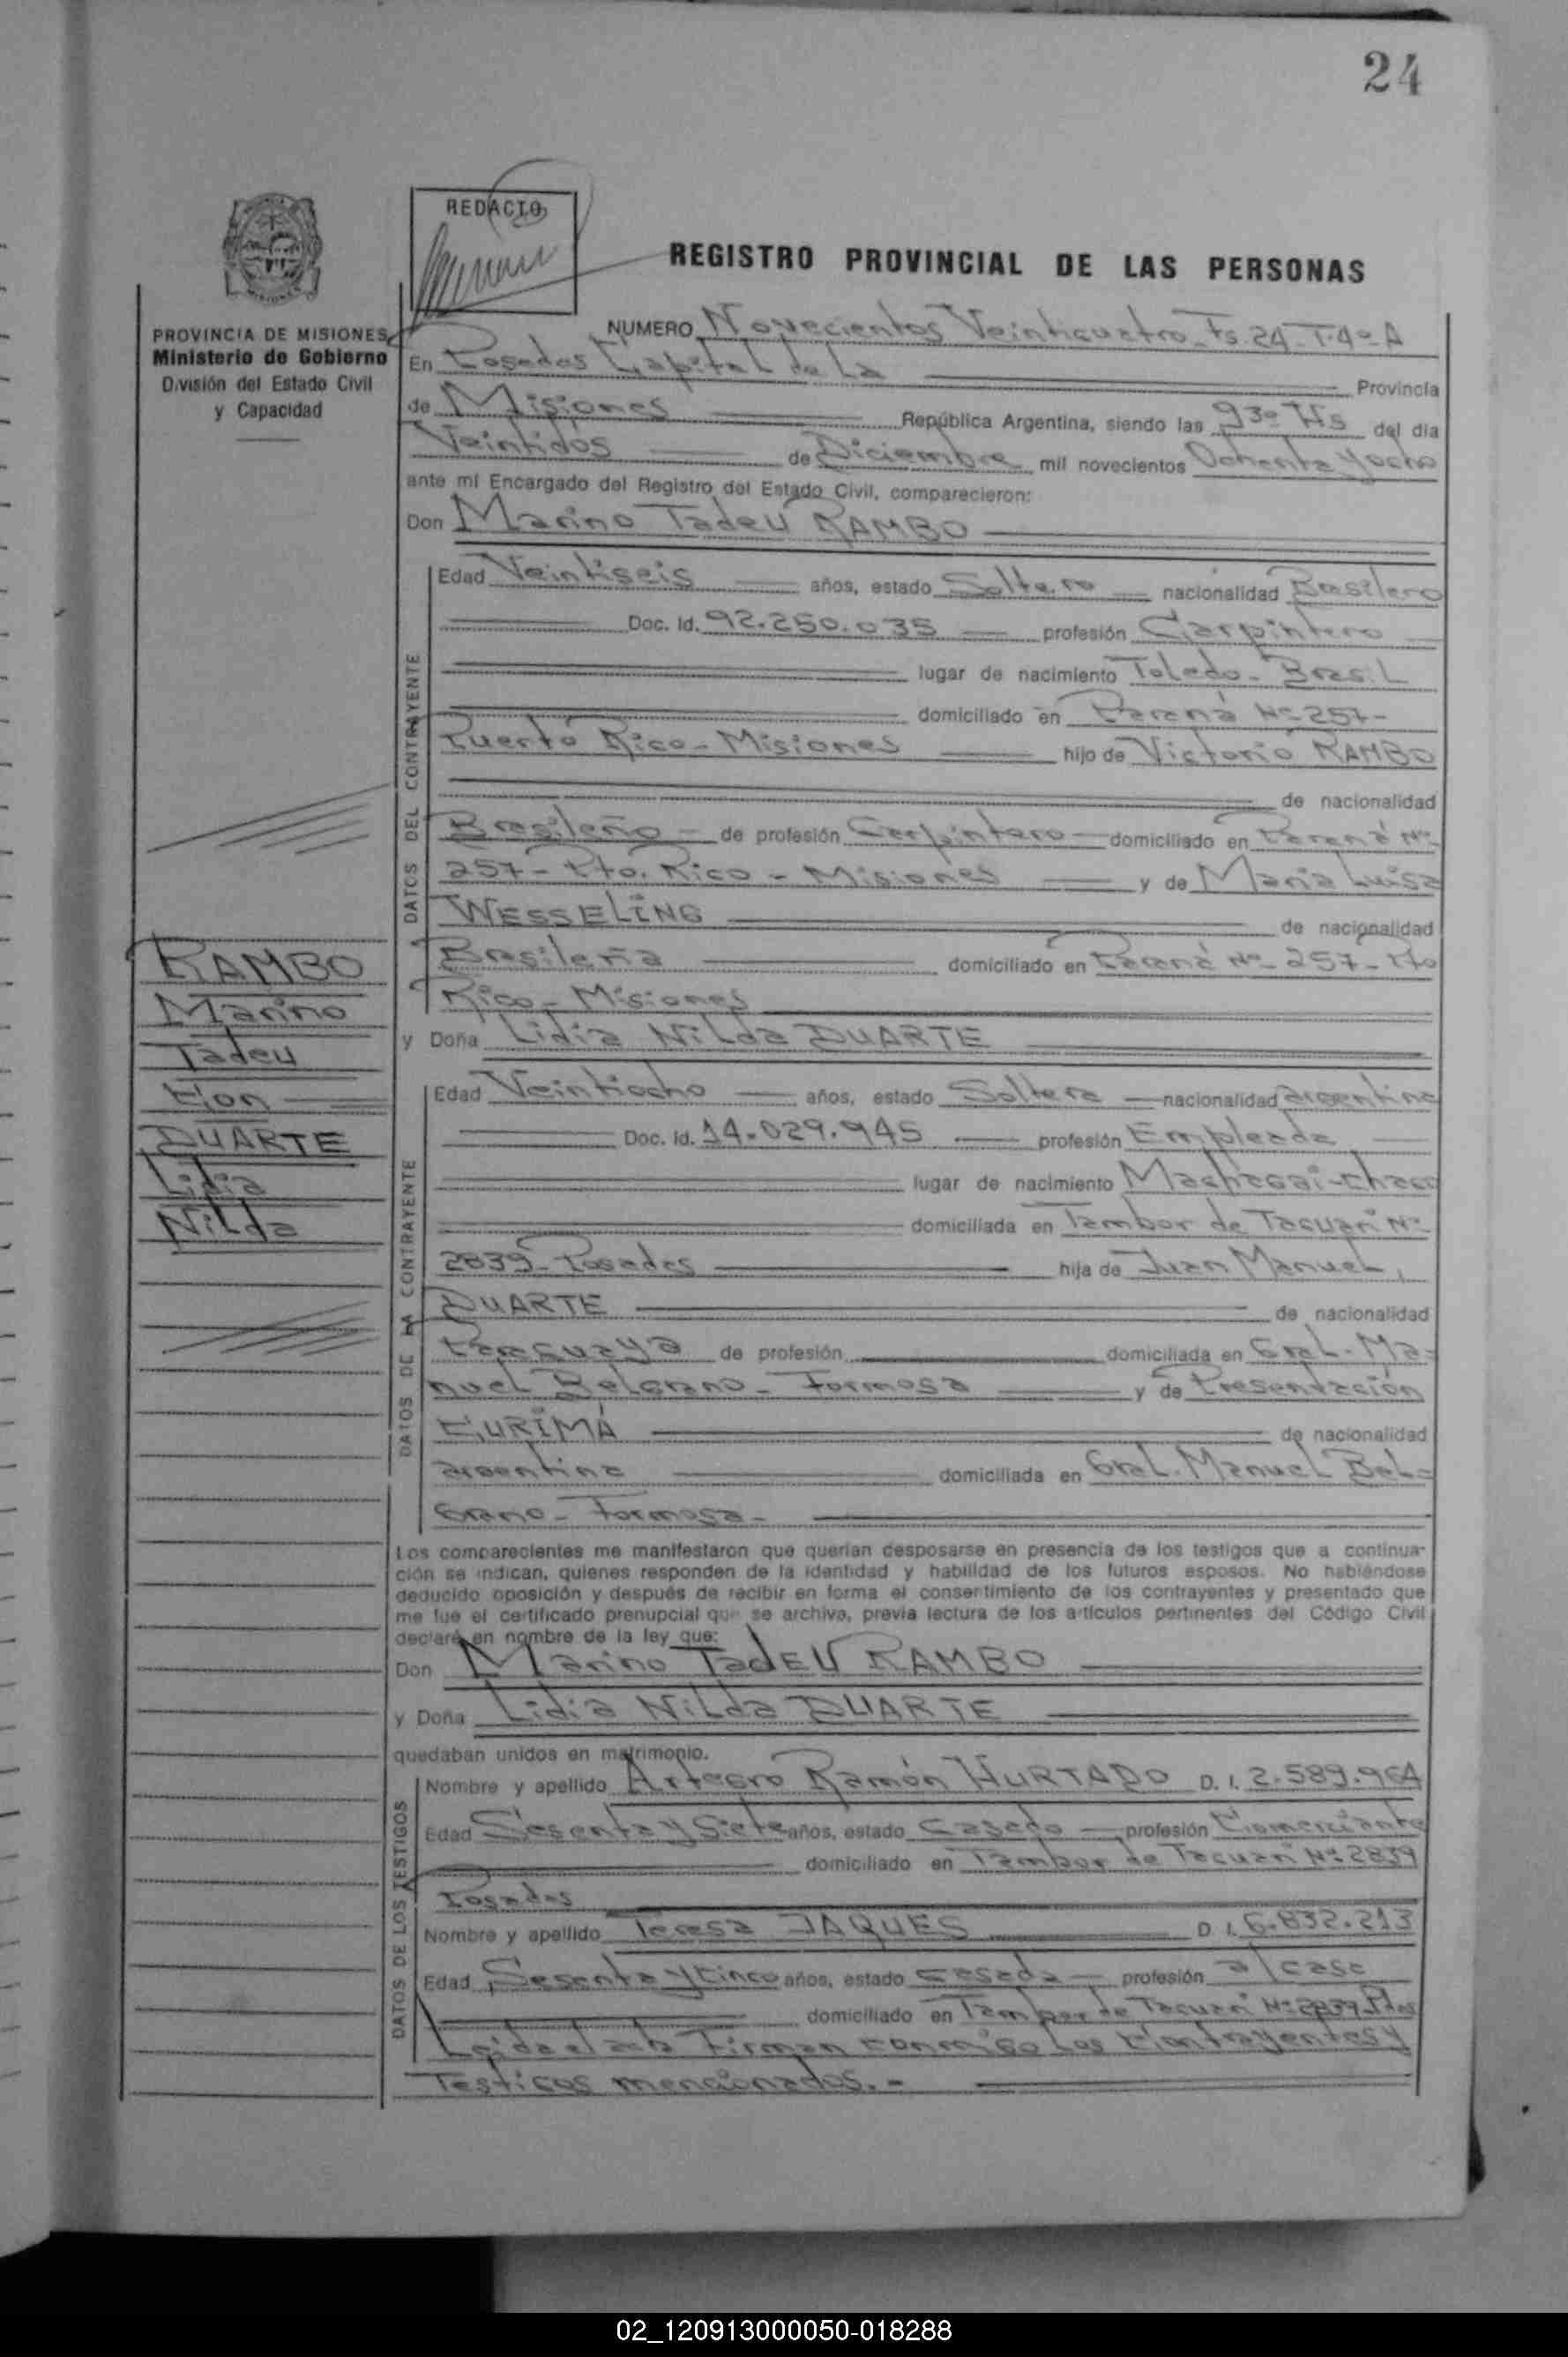 24
REDACTO
REGISTRO PROVINCIAL DE LAS PERSONAS
PROVINCIA DE MISIONES
Ministerio de Gobierno
División del Estado Civil
y Capacidad
NUMERO Novecientos Veinticuatro Fs. 24 T. 4º A
En Posadas Capital de La Provincia
de Misiones República Argentina, siendo las 930 Hs del día
Veintidos de Diciembre mil novecientos Ochenta y ocho
ante mí Encargado del Registro del Estado Civil, comparecieron:
Don Marino Tadeu RAMBO
DATOS DEL CONTRAYENTE
Edad Veintiseis años, estado Soltero nacionalidad Brasilero
Doc. Id. 92.250.035 profesión Carpintero
lugar de nacimiento Toledo - Brasil
domiciliado en Paraná Nº 257-
Puerto Rico - Misiones hijo de Victorio RAMBO
de nacionalidad
Brasileño de profesión Carpintero domiciliado en Paraná Nº
257 - Pto. Rico - Misiones y de Maria Luisa
WESSELING de nacionalidad
Brasileña domiciliado en Paraná Nº 257 - Pto
Rico - Misiones
RAMBO
Marino
Tadeu
Con
DUARTE
Lidia
Nilda
y Doña Lidia Nilda DUARTE
DATOS DE LA CONTRAYENTE
Edad Veintiocho años, estado Soltera nacionalidad argentina
Doc. Id. 14.029.945 profesión Empleada
lugar de nacimiento Machagai - Chaco
domiciliada en Tambor de Tacuarí Nº
2839 - Posadas hija de Juan Manuel
DUARTE de nacionalidad
Paraguaya de profesión domiciliada en Gral. Ma-
nuel Belgrano - Formosa y de Presentación
CURIMÁ de nacionalidad
argentina domiciliada en Gral. Manuel Bel-
grano - Formosa -
Los comparecientes me manifestaron que querían desposarse en presencia de los testigos que a continua-
ción se indican, quienes responden de la identidad y habilidad de los futuros esposos. No habiéndose
deducido oposición y después de recibir en forma el consentimiento de los contrayentes y presentado que
me fue el certificado prenupcial que se archiva, previa lectura de los artículos pertinentes del Código Civil
declaré en nombre de la ley que:
Don Marino TadEU RAMBO
y Doña Lidia Nilda DUARTE
quedaban unidos en matrimonio.
DATOS DE LOS TESTIGOS
Nombre y apellido Ramón HURTADO D. I. 2.589.964
Edad Sesenta y Siete años, estado Casado profesión Comerciante
domiciliado en Tambor de Tacuarí Nº 2839
Posadas
Nombre y apellido Teresa JAQUES D. I. 6.832.213
Edad Sesenta y Cinco años, estado Casada profesión a/ casa
domiciliado en Tambor de Tacuarí Nº 2839 Pdas
Leida el acta Firman conmigo Los Contrayentes y
Testigos mencionados. -
02_120913000050-018288